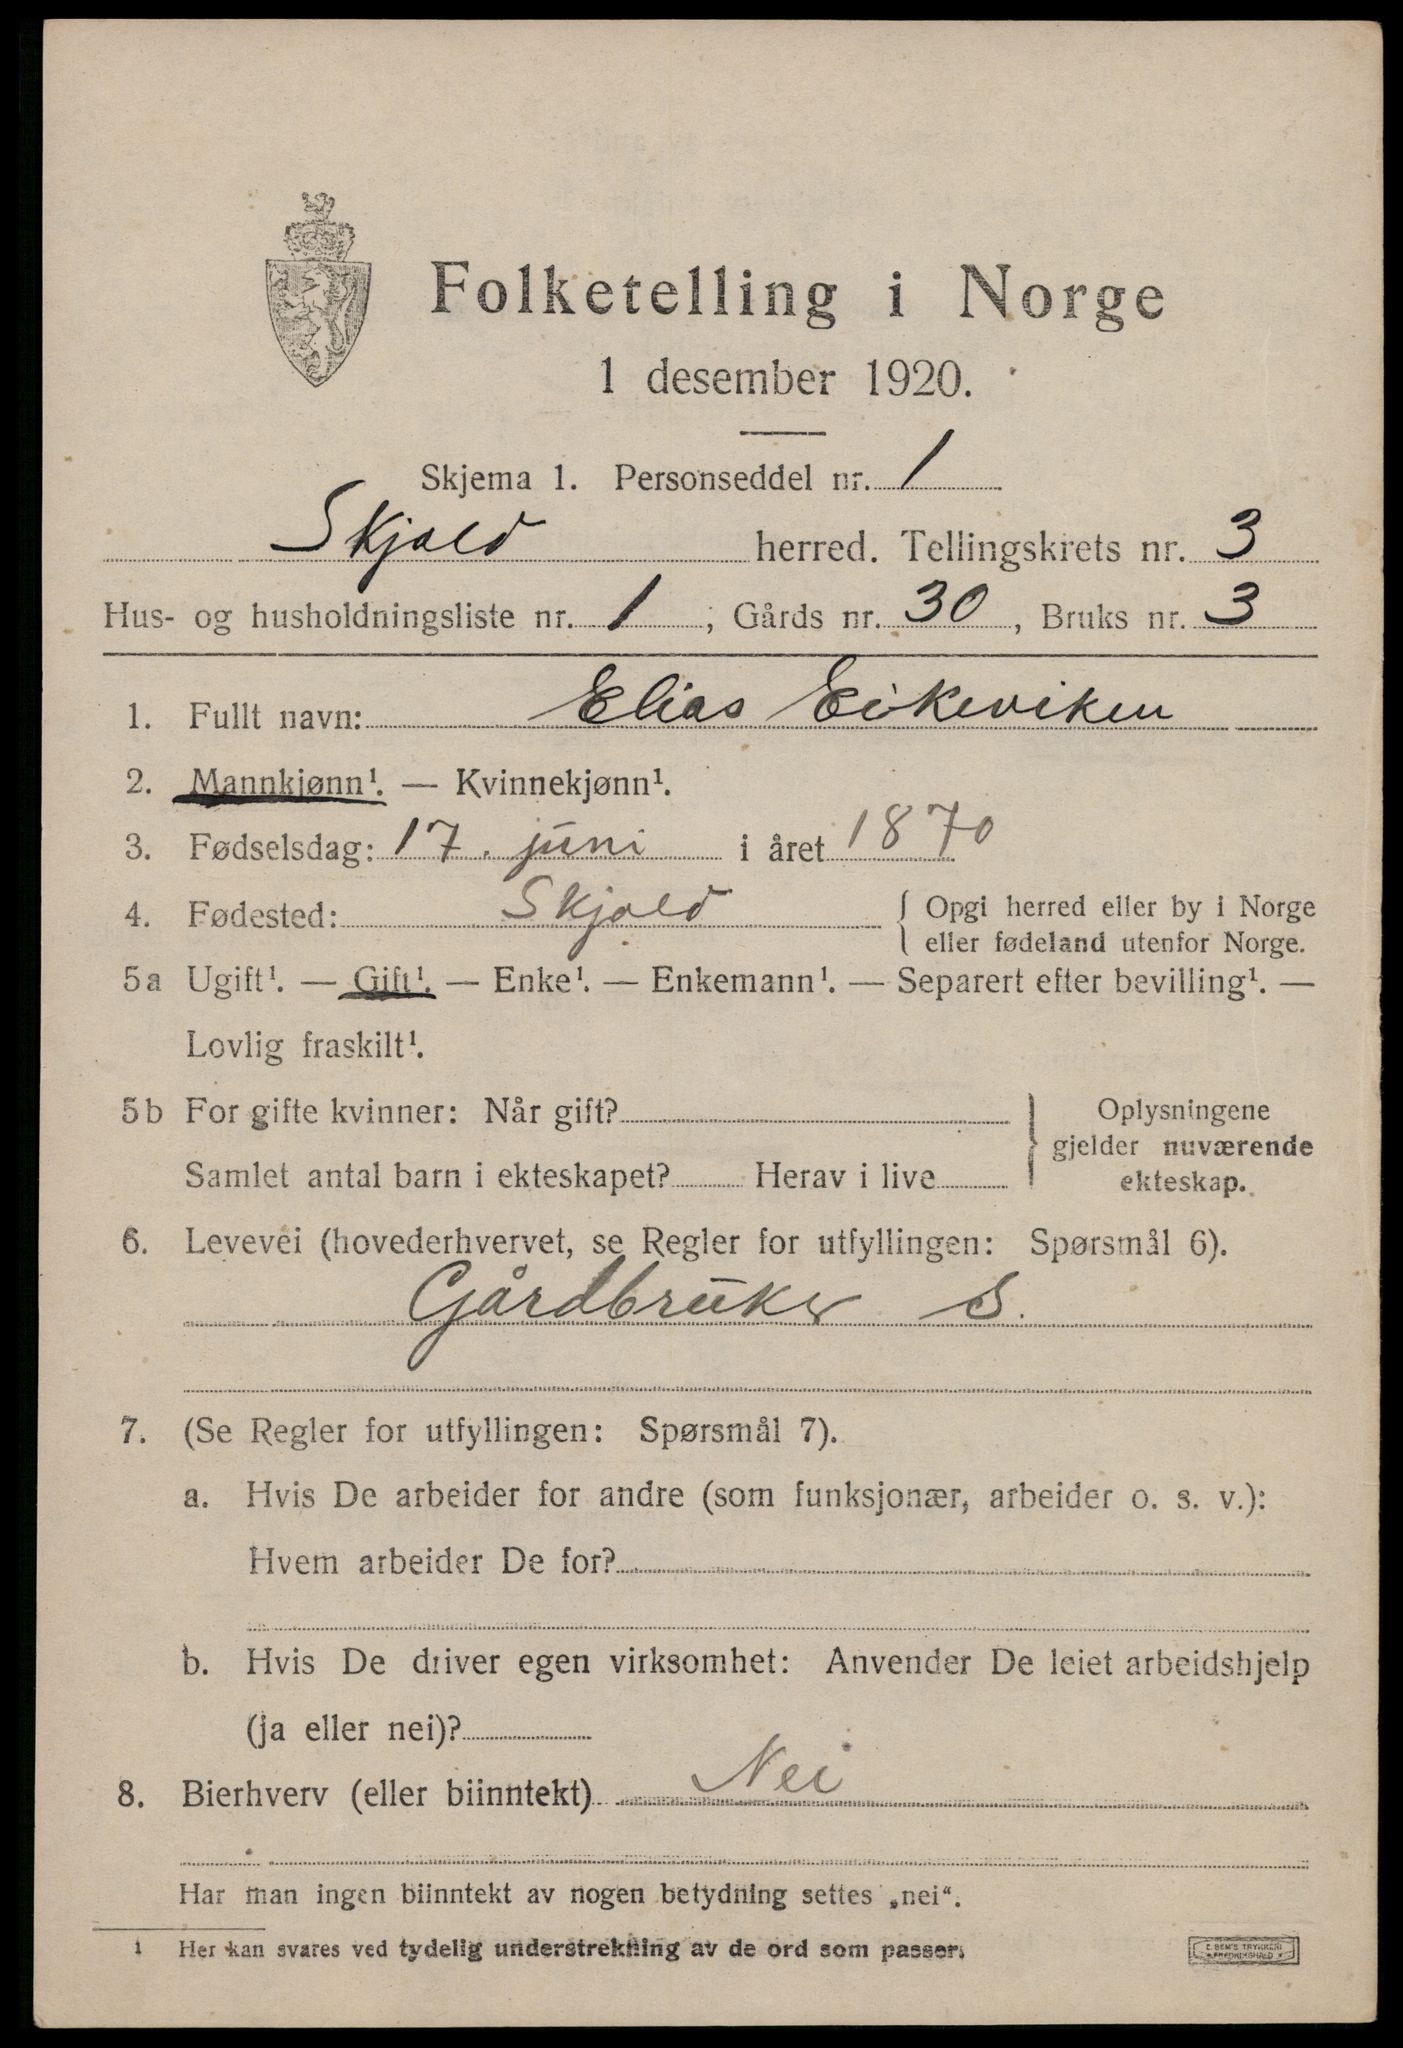 Folketelling i Norge
1 desember 1920.
Skjema 1. Personseddel nr. 1
Skjold herred. Tellingskrets nr. 3
Hus- og husholdningsliste nr. 1; Gårds nr. 30, Bruks nr. 3
1. Fullt navn: Elias Eikeviken
2. Mannkjønn¹. — Kvinnekjønn¹.
3. Fødselsdag: 17. juni i året 1870
4. Fødested: Skjold { Opgi herred eller by i Norge
eller fødeland utenfor Norge.
5a Ugift¹. — Gift¹. — Enke¹. — Enkemann¹. — Separert efter bevilling¹. —
Lovlig fraskilt¹.
5b For gifte kvinner: Når gift? } Oplysningene
gjelder nuværende
Samlet antal barn i ekteskapet? Herav i live ekteskap.
6. Levevei (hovederhvervet, se Regler for utfyllingen: Spørsmål 6).
Gårdbruker S.
7. (Se Regler for utfyllingen: Spørsmål 7).
a. Hvis De arbeider for andre (som funksjonær, arbeider o. s. v.):
Hvem arbeider De for?
b. Hvis De driver egen virksomhet: Anvender De leiet arbeidshjelp
(ja eller nei)?
8. Bierhverv (eller biinntekt) Nei
Har man ingen biinntekt av nogen betydning settes „nei“.
1 Her kan svares ved tydelig understrekning av de ord som passer.
E. SEM'S TRYKKERI
FREDRIKSHALD